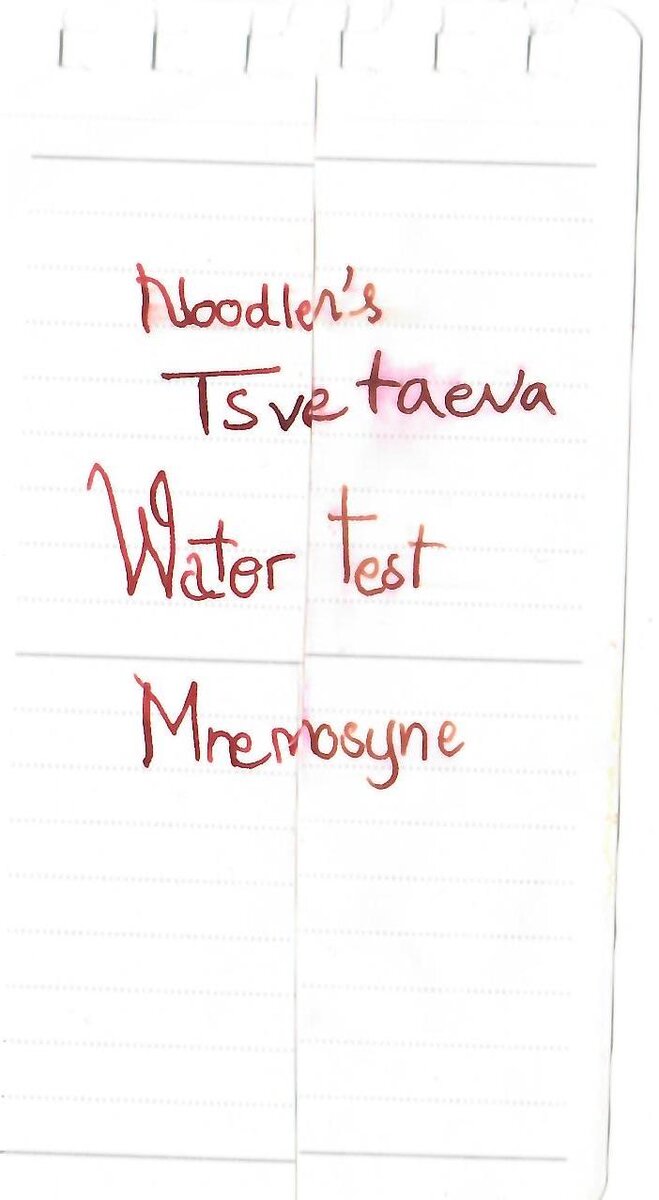 Noodler's
Tsvetaeva
Water test
Mnemosyne